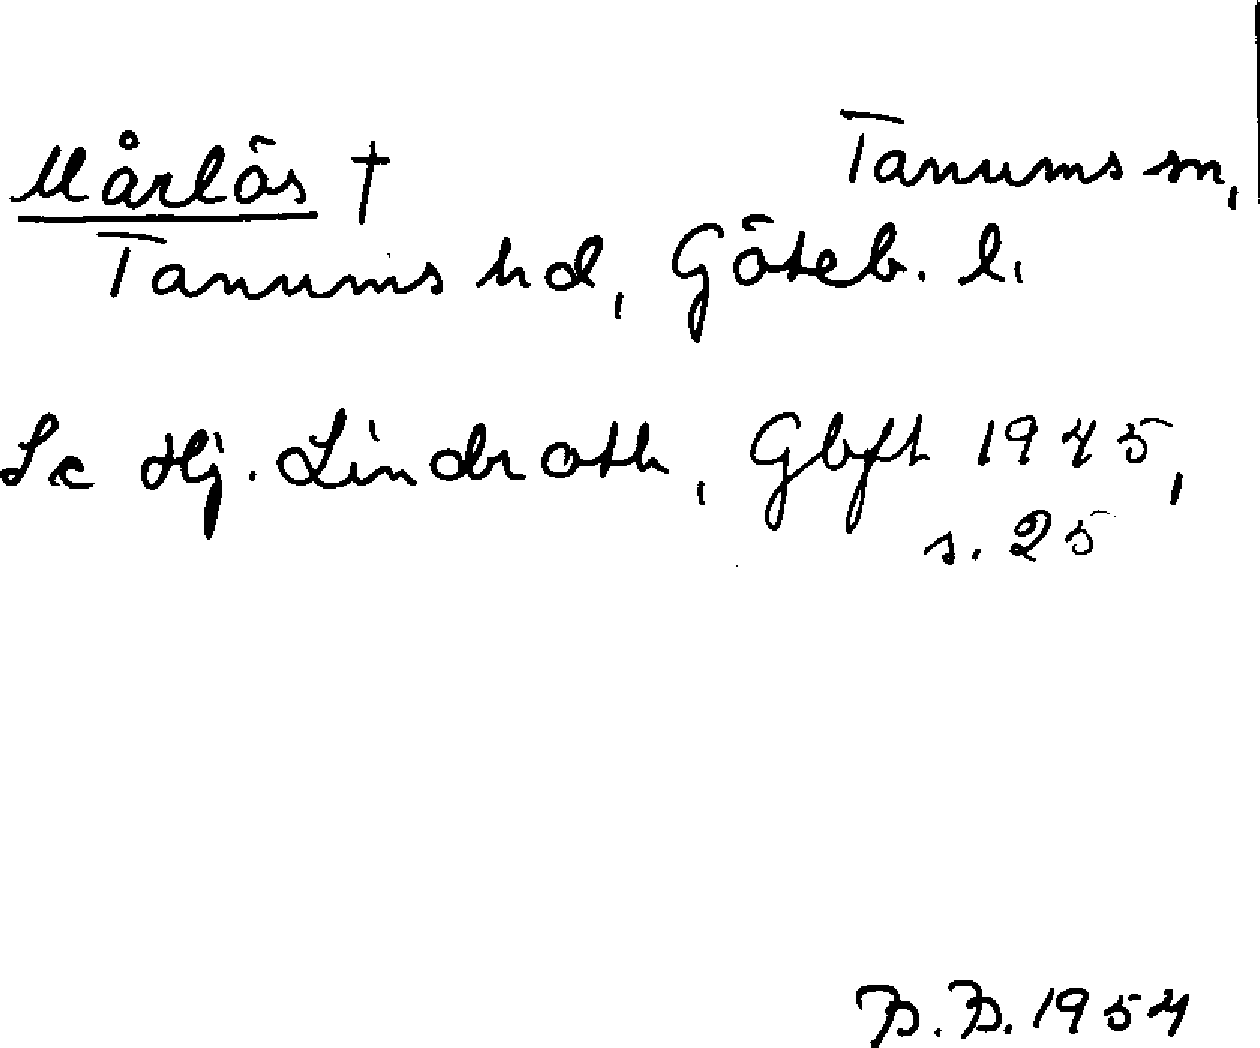 Mårlös † Tanums sn,
Tanums hd, Göteb. l.
Se Hj. Lindroth, Gbft 1945,
s. 25
B. B. 1954